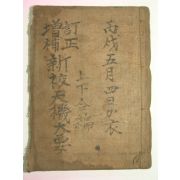 丙戌五月四日衣
訂正
增補
新校天機大要
上下合編